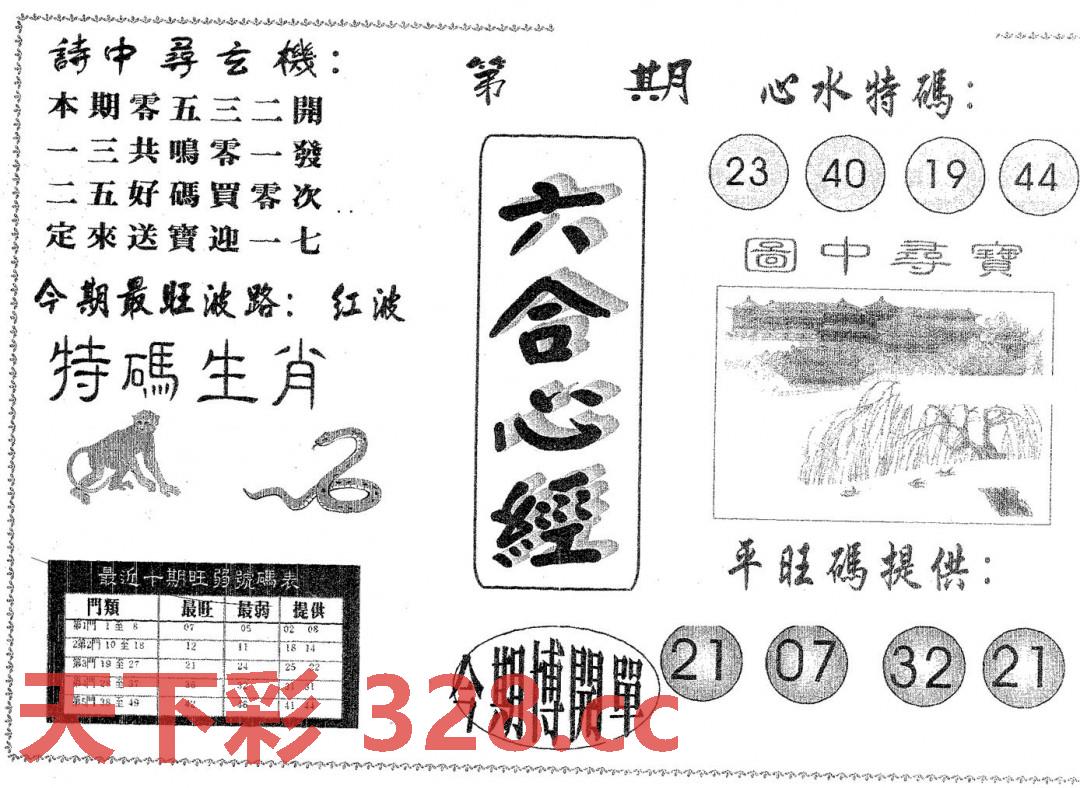 詩中尋玄機：
本期零五三二開
一三共鳴零一發
二五好碼買零次
定來送寶迎一七
今期最旺波路：红波
特碼生肖
最近十期旺弱號碼表
門類 最旺 最弱 提供
第1門 1 至 8 07 05 02 08
2第2門 10 至 18 12 11 18 14
第3門 19 至 27 21 24 25 22
第5門 38 至 49 42 46 41 44
第 期
六合心經
今期博開單
心水特碼：
23 40 19 44
圖中尋寶
平旺碼提供：
21 07 32 21
天下彩 328.cc